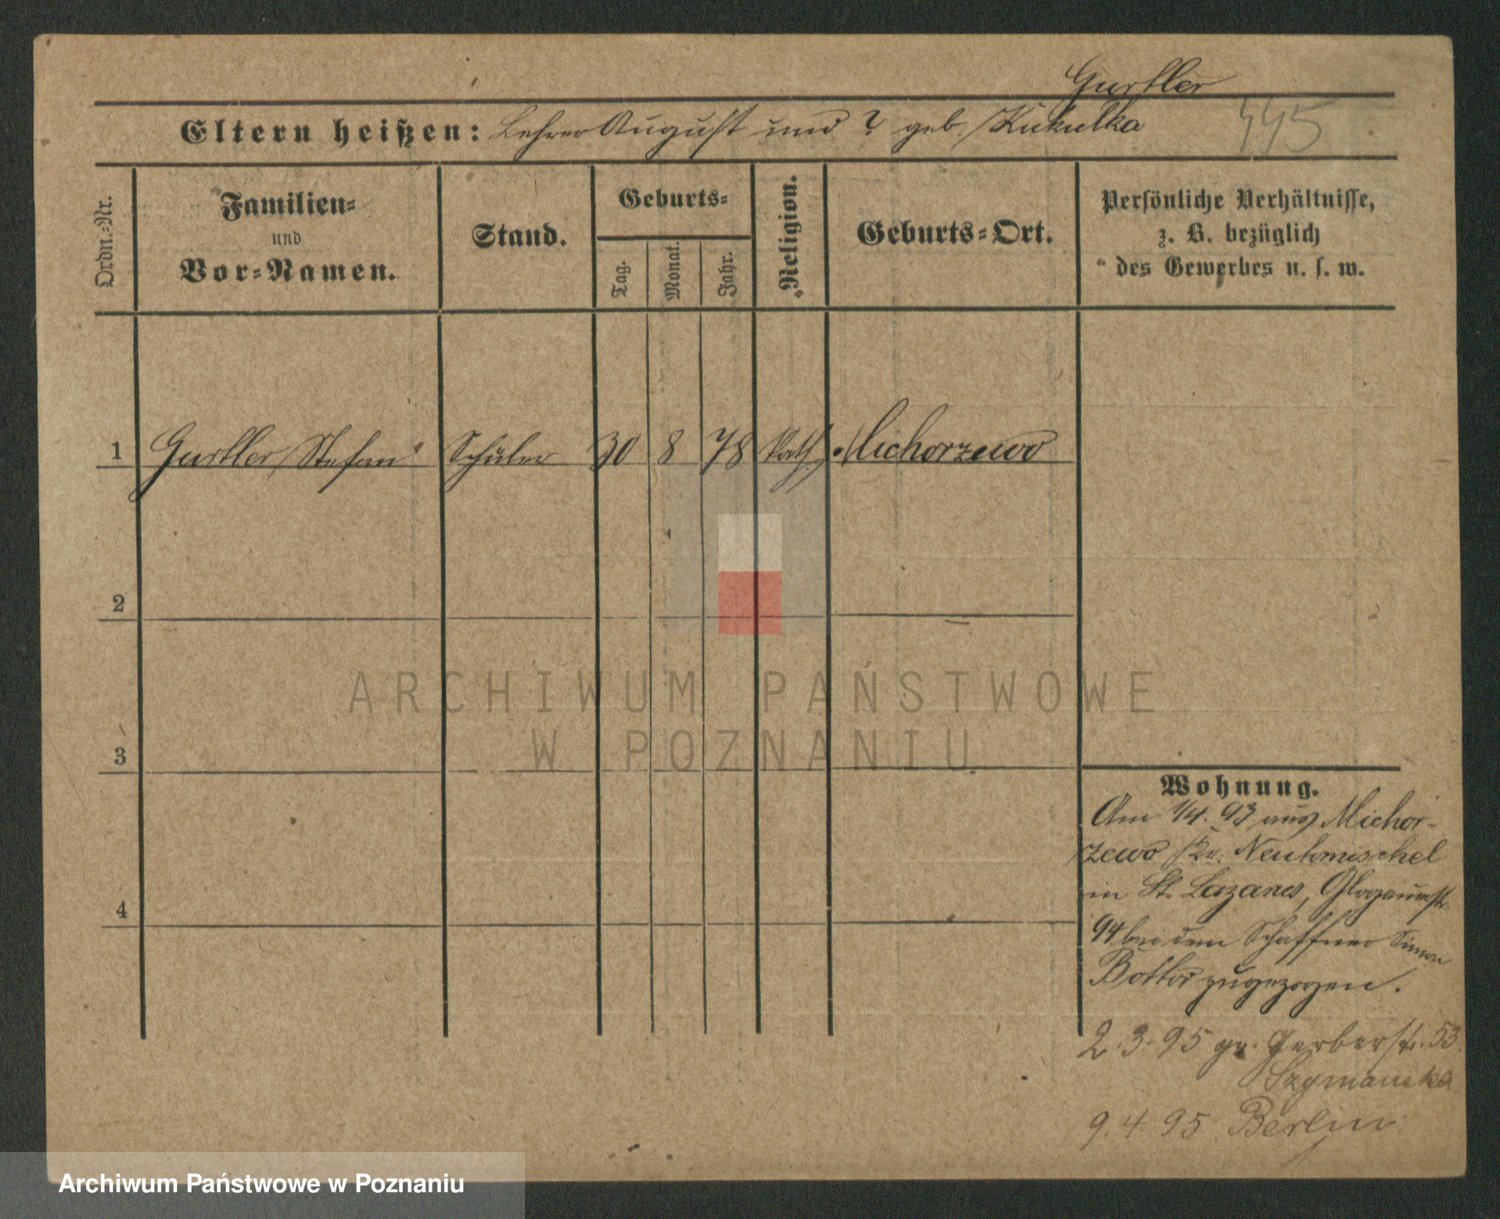 Gurtler
Eltern heißen: Lehrer August und ? geb. Kukulka 445
Ordn.-Nr.
Familien-
und
Vor-Namen.
Stand.
Geburts-
Tag.
Monat.
Jahr.
Religion.
Geburts-Ort.
Persönliche Verhältnisse,
z. B. bezüglich
des Gewerbes u. s. w.
1 Gurtler Stefan Schüler 30 8 78 kath. Michorzewo
2
ARCHIWUM PAŃSTWOWE
W POZNANIU
3
Wohnung.
Am 1/4. 93 aus Michor-
zewo Kr. Neutomischel
in St. Lazarus, Glogauerstr.
4
94 bei dem Schaffner Simon
zugezogen.
2.3.95 gr. Gerberstr. 53
Szymanska
9.4.95 Berlin
Archiwum Państwowe w Poznaniu